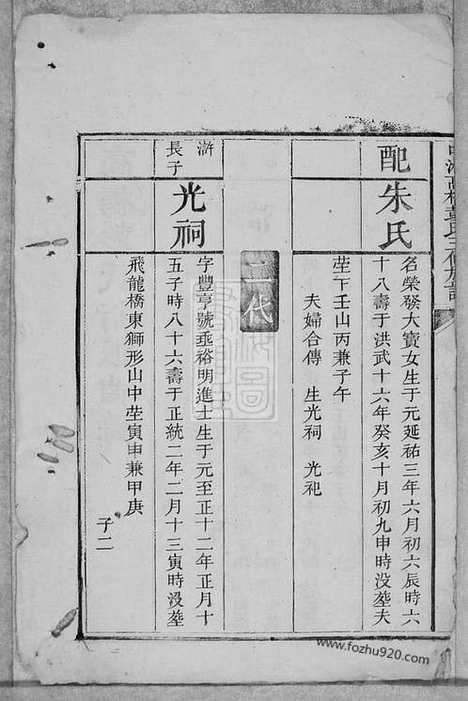 配
朱氏
名榮發大寶女生于元延祐三年六月初六辰時六
十八壽于洪武十六年癸亥十月初九申時没塟夫
塋下壬山丙兼子午
夫婦合傳　生光祠　光祀
二代
滸
長子
光祠
字豐亨號垂裕明進士生于元至正十二年正月十
五子時八十六壽于正統二年二月十三寅時没塟
飛龍橋東獅形山中塋寅申兼甲庚
子二
www.fozhu920.com